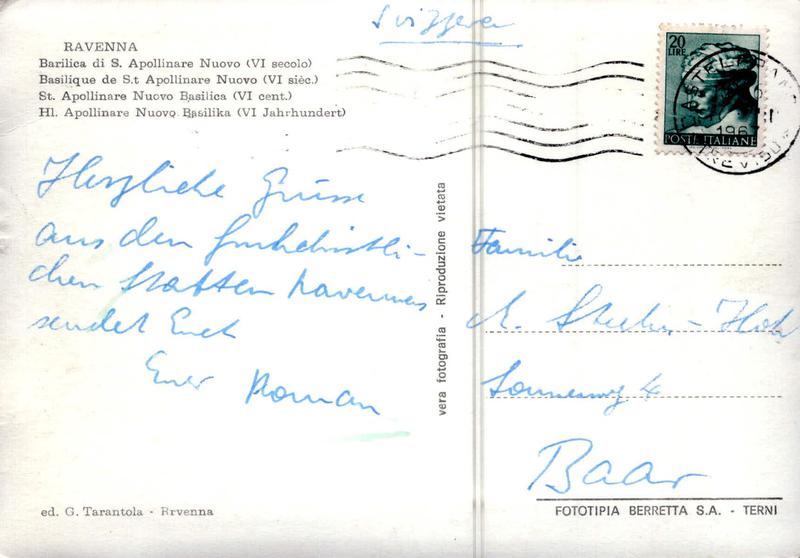 Svizzera
RAVENNA
Barilica di S. Apollinare Nuovo (VI secolo)
Basilique de S.t Apollinare Nuovo (VI sièc.)
St. Apollinare Nuovo Basilica (VI cent.)
Hl. Apollinare Nuovo Basilika (VI Jahrhundert)
20
LIRE
POSTE ITALIANE
196
TREVISO
Herzliche Grüsse
aus den frühchristli-
chen Stätten Ravennas
sendet Euch
Euer Roman
vera fotografia - Riproduzione vietata
Familie
A. - Hotz
Sonnenweg 4
Baar
ed. G. Tarantola - Rrvenna
FOTOTIPIA BERRETTA S.A. - TERNI